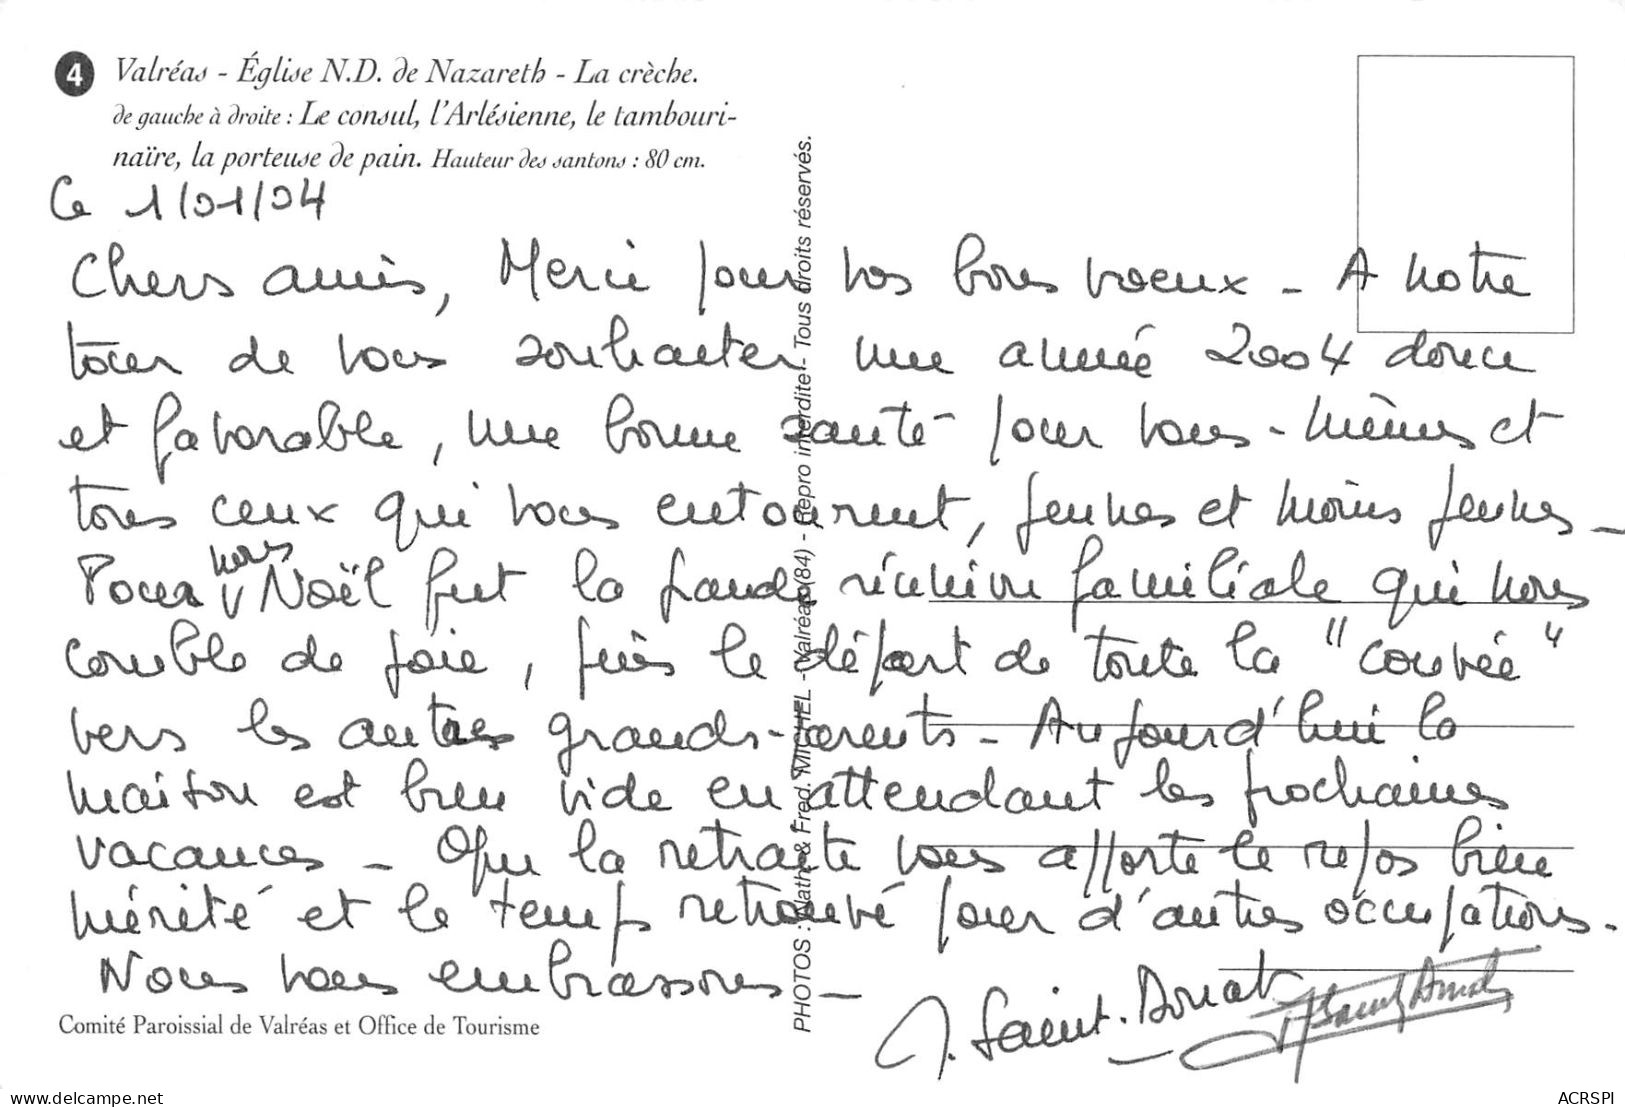 4 Valréas - Église N.D. de Nazareth - La crèche.
de gauche à droite : Le consul, l'Arlésienne, le tambouri-
naïre, la porteuse de pain. Hauteur des santons : 80 cm.
Ce 1/01/04
Chers amis, Merci pour vos bons voeux - A notre
tour de vous souhaiter une année 2004 douce
et favorable, une bonne santé pour vous-mêmes et
tous ceux qui vous entourent, jeunes et moins jeunes -
Pour nous Noël fut la grande réunion familiale qui nous
comble de joie, puis le départ de toute la "couvée"
vers les autres grands-parents - Aujourd'hui la
maison est bien vide en attendant les prochaines
vacances - Que la retraite vous apporte le repos bien
mérité et le temps retrouvé pour d'autres occupations.
Nous vous embrassons -
J. Saint-Donat
Comité Paroissial de Valréas et Office de Tourisme
PHOTOS : Nath. & Fred. MICHEL - Valréas (84) - Repro interdite - Tous droits réservés.
ACRSPI